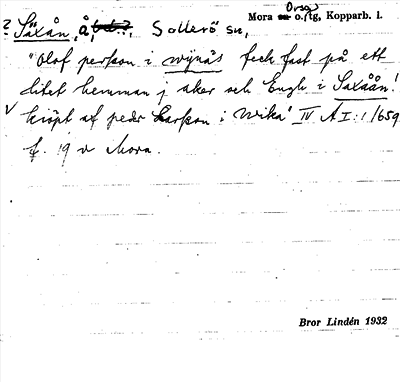 ? Säxån, å, Sollerö sn, Mora o. Orsa tg, Kopparb. l.
"Olof persson i wijnäs feck fast på ett
litet hemman j åker och Engh i Saxåån!
√ kiöpt af peder Larsson i wika" IV A I:1/659
f. 19 v Mora.
Bror Lindén 1932